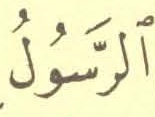 ٱلرَّسُولُ